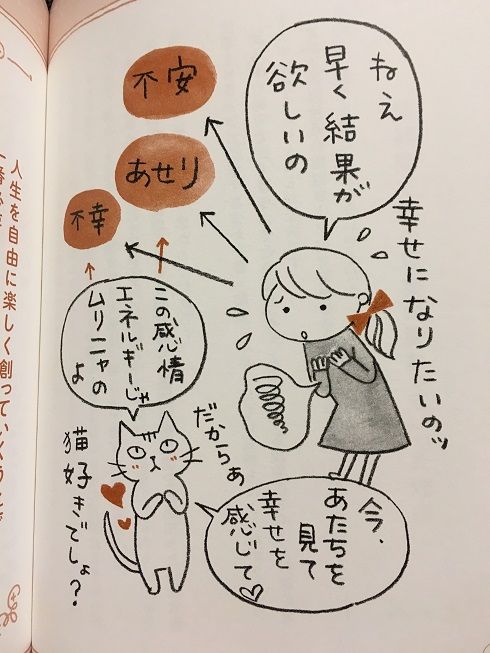 ねえ
早く結果が
欲しいの
幸せになりたいのッ
不安
あせり
不幸
この感情
エネルギーじゃ
ムリニャの
よ
だからぁ
今、
あたちを
見て
幸せを
感じて♡
猫好きでしょ?
人生を自由に楽しく創っていく